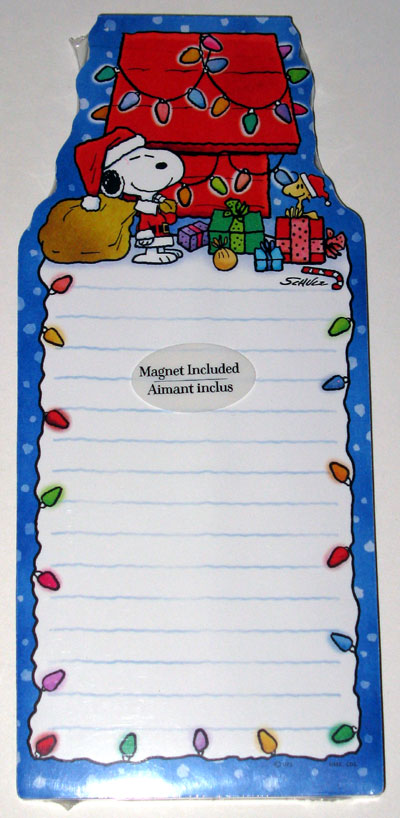 SCHULZ
Magnet Included
Aimant inclus